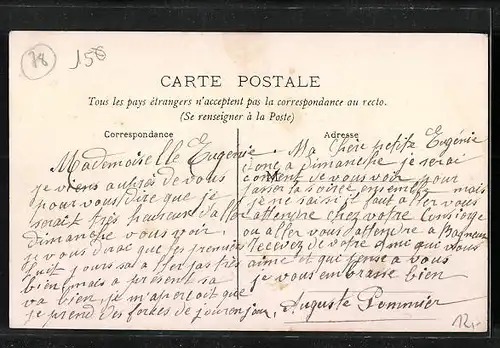 78
158
CARTE POSTALE
Tous les pays étrangers n'acceptent pas la correspondance au recto.
(Se renseigner à la Poste)
Correspondance
Mademoiselle Eugénie
je viens auprès de vous
pour vous dire que je
serait très heureux d'aller
dimanche vous voir.
je vous dirai que les premiers
huit jours sa a fer pas très
bien mais a présent sa
va bien, je m'aperçoit que
je prend des forces de jour en jour,
Adresse
Ma Chère petite Eugénie
donc a dimanche je serai
content de vous voir pour
passer la soirée ensemble mais
je ne sai si il faut aller vous
attendre chez votre Concierge
ou aller vous attendre a Bagneux
recevez de votre ami qui vous
aime et qui pense a vous
je vous embrasse bien
Auguste Pommier
M
12,-